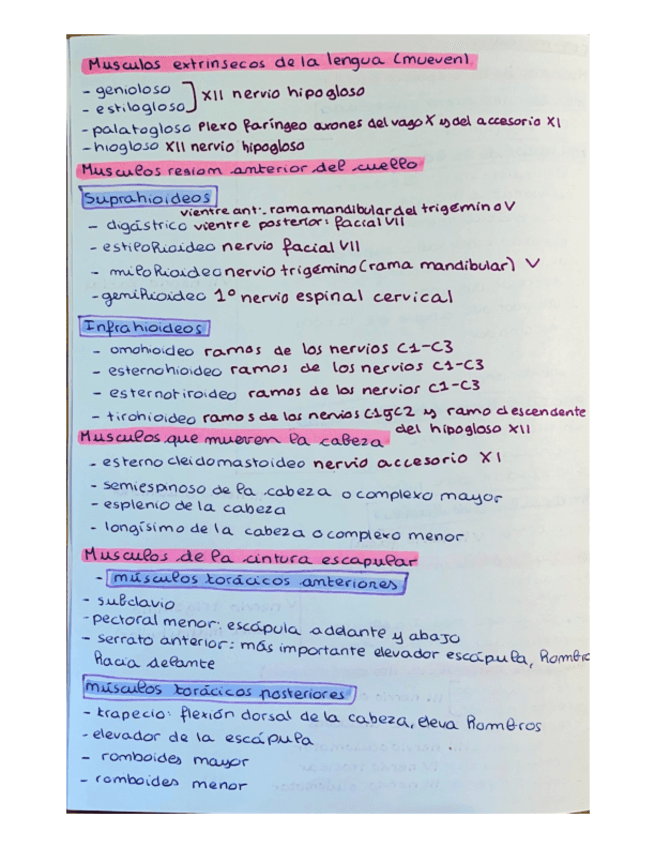 Musculos extrinsecos de la lengua (mueven)
- genioloso
- estilogloso
XII nervio hipogloso
- palatogloso Plexo faríngeo axones del vago X y del accesorio XI
- hiogloso XII nervio hipogloso
Musculos resion anterior del cuello
Suprahioideos
vientre ant.: rama mandibular del trigémino V
- digástrico vientre posterior: facial VII
- estilohioideo nervio facial VII
- milohioideo nervio trigémino (rama mandibular) V
- genihioideo 1º nervio espinal cervical
Infrahioideos
- omohioideo ramos de los nervios C1-C3
- esternohioideo ramos de los nervios C1-C3
- esternotiroideo ramos de los nervios C1-C3
- tirohioideo ramos de los nervios C1 y C2 y ramo descendente
del hipogloso XII
Musculos que mueven la cabeza
- esterno cleidomastoideo nervio accesorio XI
- semiespinoso de la cabeza o complexo mayor
- esplenio de la cabeza
- longísimo de la cabeza o complexo menor
Musculos de la cintura escapular
- músculos torácicos anteriores
- subclavio
- pectoral menor: escápula adelante y abajo
- serrato anterior: más importante elevador escápula, hombro
hacia delante
músculos torácicos posteriores
- trapecio: flexión dorsal de la cabeza, eleva hombros
- elevador de la escápula
- romboides mayor
- romboides menor